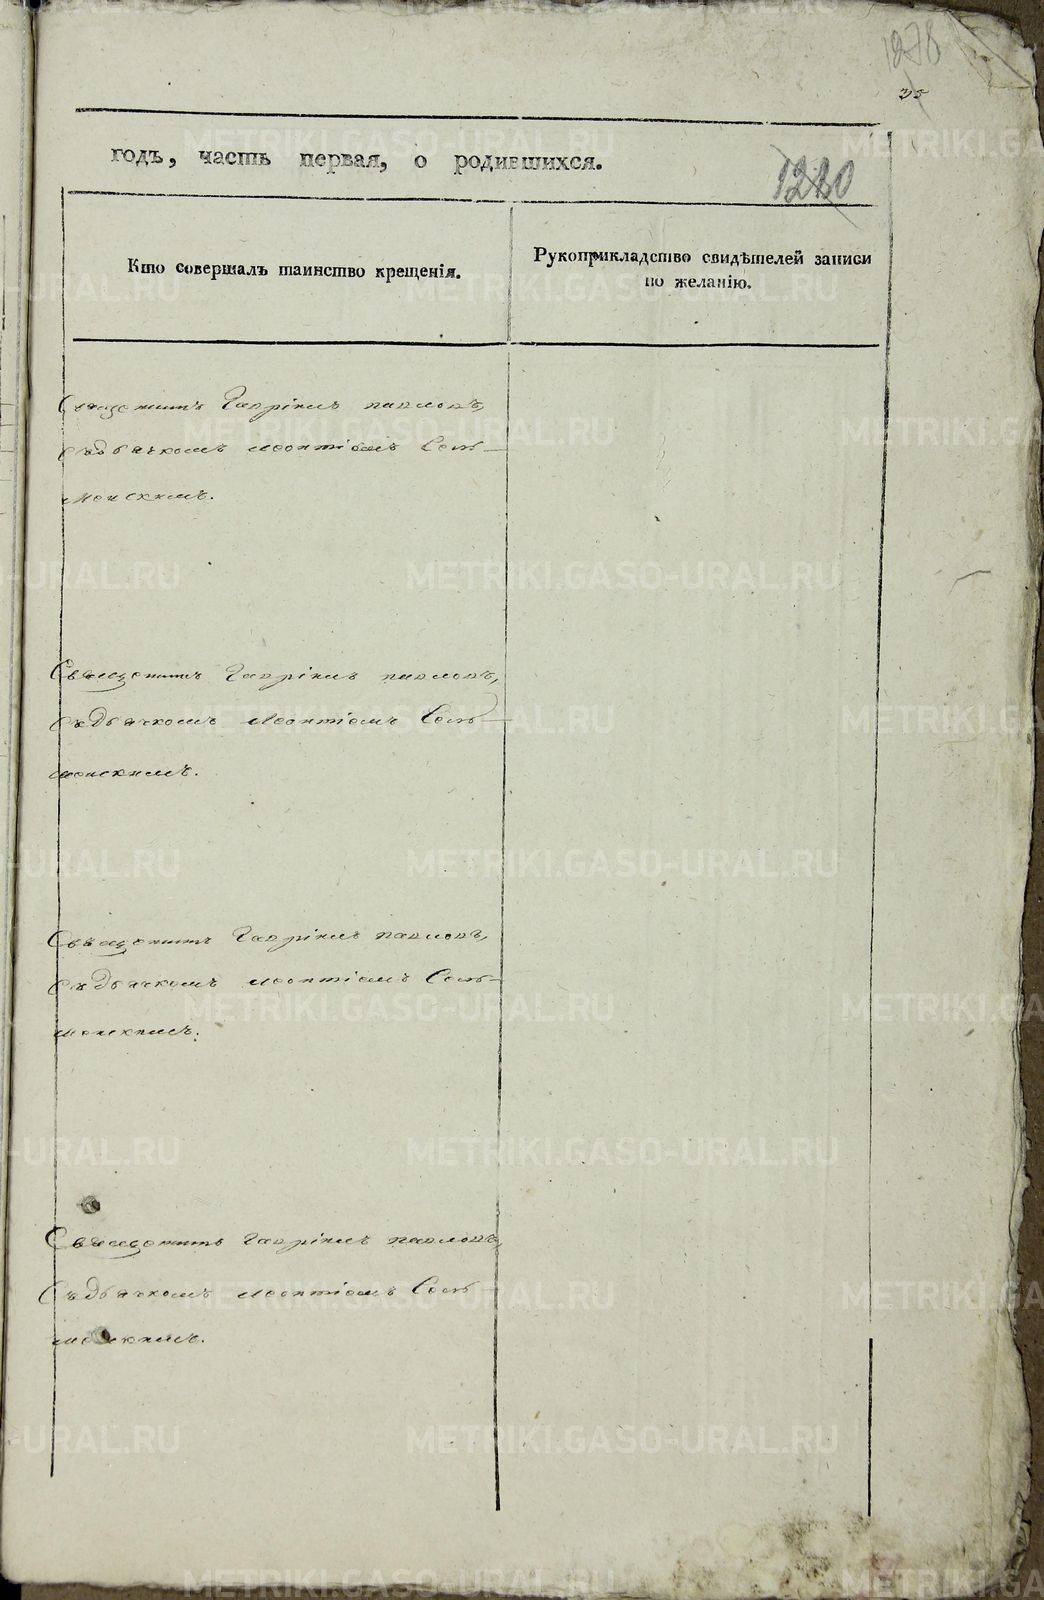 1278
35
годъ, часть первая, о родившихся.
1280
Кто совершалъ таинство крещенія.
Рукоприкладство свидѣтелей записи
по желанію.
Священникъ Гавріилъ павловъ,
съ дьячкомъ леонтіемъ
Священникъ Гавріилъ павловъ,
съ дьячкомъ леонтіемъ
Священникъ Гавріилъ павловъ,
съ дьячкомъ леонтіемъ
Священникъ Гавріилъ павловъ,
съ дьячкомъ леонтіемъ
METRIKI.GASO-URAL.RU